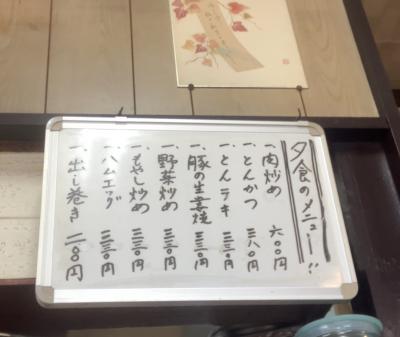 夕食のメニュー!!
一、肉炒め 六〇〇円
一、とんかつ 三八〇円
一、とんテキ 三三〇円
一、豚の生姜焼 三三〇円
一、野菜炒め 三三〇円
一、もやし炒め 三三〇円
一、ハムエッグ 三三〇円
一、出し巻き 二八〇円